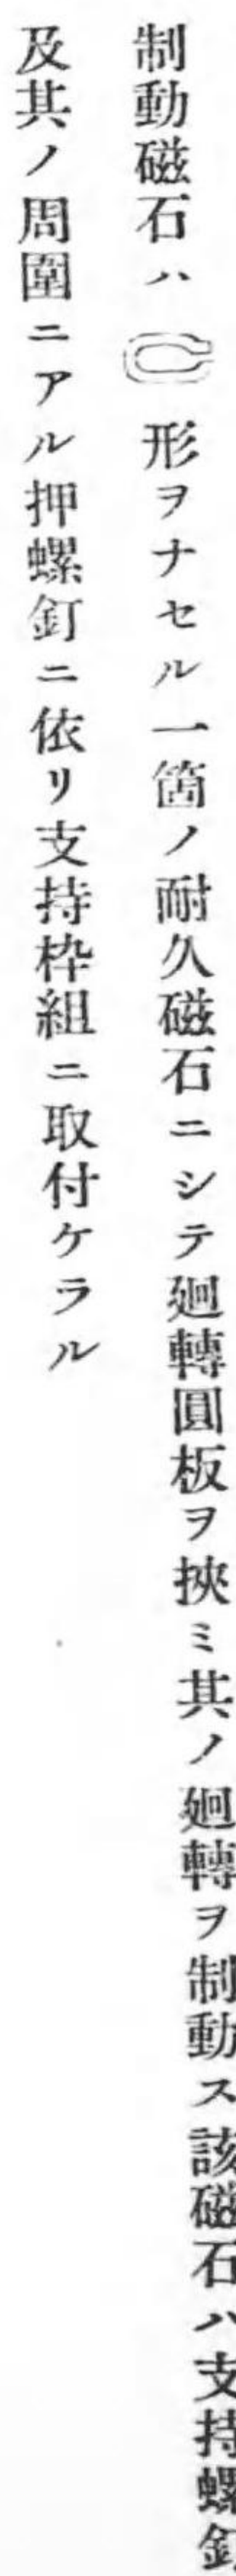 制動磁石ハ 形ヲナセル一箇ノ耐久磁石ニシテ廻轉圓板ヲ挾ミ其ノ廻轉ヲ制動ス該磁石ハ支持螺釘
及其ノ周圍ニアル押螺釘ニ依リ支持枠組ニ取付ケラル